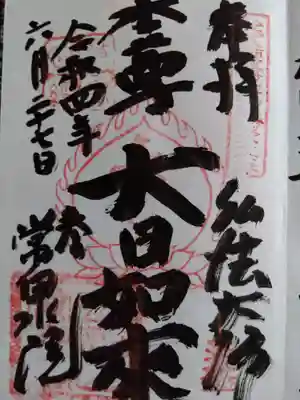 奉拝
弘法大師
本尊
大日如來
令和四年
六月二十七日
常泉院